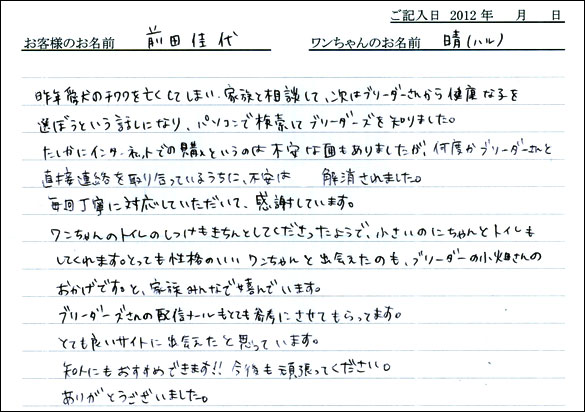 ご記入日 2012 年 月 日
お客様のお名前 前田佳代 ワンちゃんのお名前 晴(ハル)
昨年愛犬のチワワを亡くしてしまい、家族と相談して、次はブリーダーさんから健康な子を
選ぼうという話しになり、パソコンで検索にてブリーダーズを知りました。
たしかにインターネットでの購入というのは不安な面もありましたが、何度かブリーダーさんと
直接連絡を取り合っているうちに、不安は 解消されました。
毎回丁寧に対応していただいて、感謝しています。
ワンちゃんのトイレのしつけもきちんとしてくださったようで、小さいのにちゃんとトイレも
してくれます。とっても性格のいいワンちゃんと出会えたのも、ブリーダーの小畑さんの
おかげです。と、家族みんなで喜んでいます。
ブリーダーズさんの配信メールもとても参考にさせてもらってます。
とても良いサイトに出会えたと思っています。
知人にもおすすめできます!! 今後も頑張ってください。
ありがとうございました。